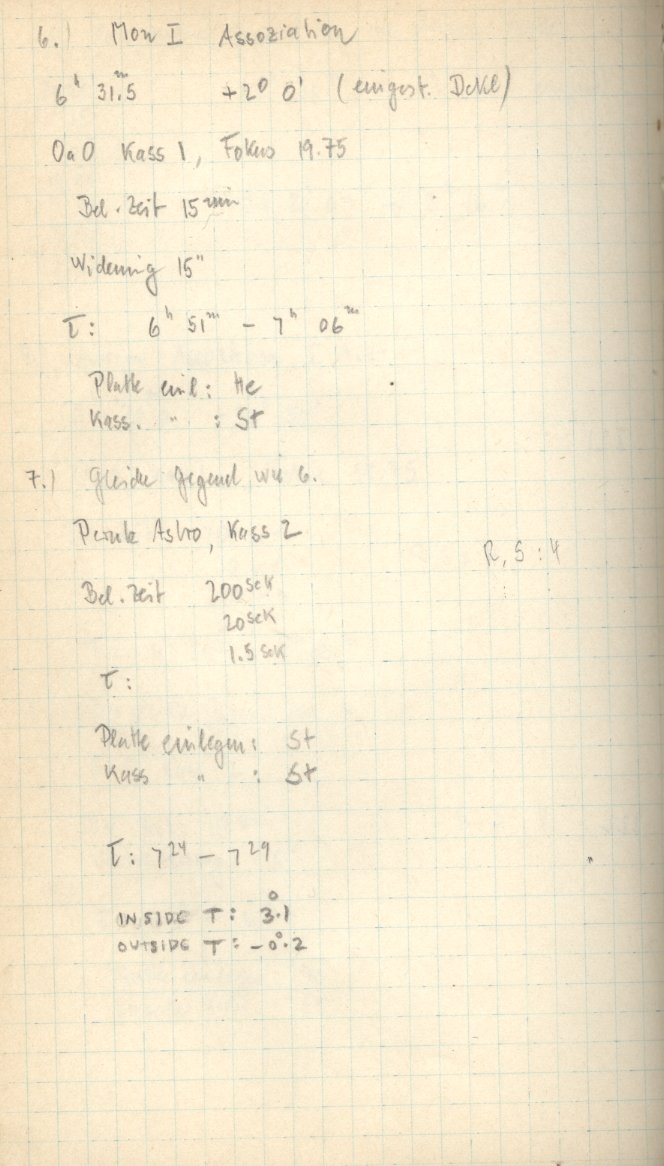 6.) Mon I Assoziation
6ʰ 31ᵐ.5 +2° 0' (eingest. Dekl)
OaO Kass 1, Fokus 19.75
Bel. Zeit 15 min
Widening 15"
τ: 6ʰ 51ᵐ - 7ʰ 06ᵐ
Platte einl: He
Kass. " : St
7.) Gleiche Gegend wie 6.
Astro, Kass 2
R, S : 4
Bel. Zeit 200 sek
20 sek
1.5 sek
τ:
Platte einlegen: St
Kass " : St
τ: 7²⁴ - 7²⁹
INSIDE T: 3°.1
OUTSIDE T: -0°.2